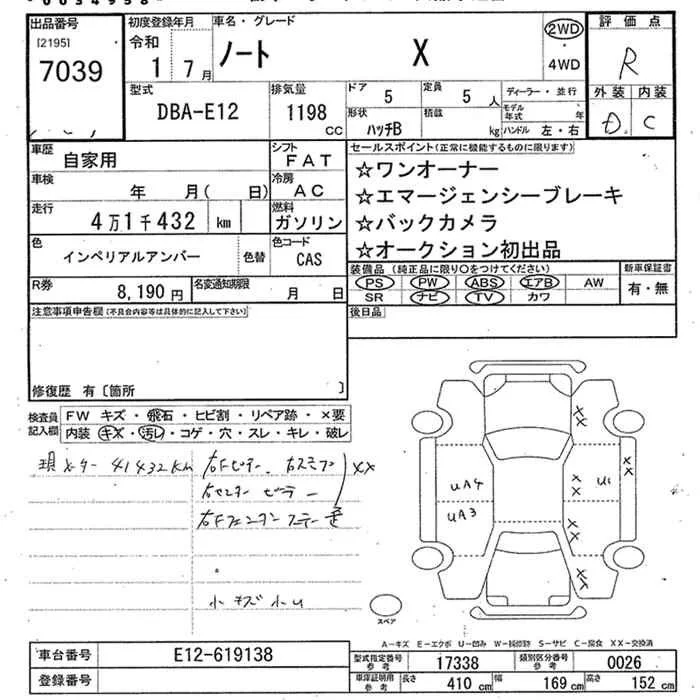 出品番号
[2195]
7039
初度登録年月
令和
1 7月
車名・グレード
ノート X
2WD
・
4WD
評価点
R
外装 内装
D. C
型式
DBA-E12
排気量
1198
CC
ドア
5
定員
5 人
形状
ハッチB
積載
kg
ディーラー・並行
モデル年式 年
ハンドル 左・右
車歴 自家用
シフト
FAT
車検 年 月( 日)
冷房
AC
走行 4万1千432 km
燃料
ガソリン
色 インペリアルアンバー
色替
色コード
CAS
R券 8,190円
名変通知期限 月 日
セールスポイント(正常に機能するものに限ります)
☆ワンオーナー
☆エマージェンシーブレーキ
☆バックカメラ
☆オークション初出品
装備品(純正品に限り○をつけてください)
PS PW ABS エアB AW
SR ナビ TV カワ
新車保証書
有・無
注意事項申告欄(不具合内容等は具体的に記入して下さい)
後日品
修復歴 有〔箇所 〕
検査員記入欄
FW キズ・飛石・ヒビ割・リペア跡・×要
内装 キズ・汚レ・コゲ・穴・スレ・キレ・破レ
現メーター 41432km
右Fピラー、右ステップ XX
右センターピラー
右Fフェンダーステー 歪
小キズ小U
XX
UA4
UA3
XX
U1
XX
XX
XX
スペア
A-キズ E-エクボ U-凹み W-補修跡 S-サビ C-腐食 XX-交換済
車台番号 E12-619138
登録番号
型式指定番号参考 17338
類別区分番号参考 0026
車庫証明用参考 長さ 410 cm 幅 169 cm 高さ 152 cm